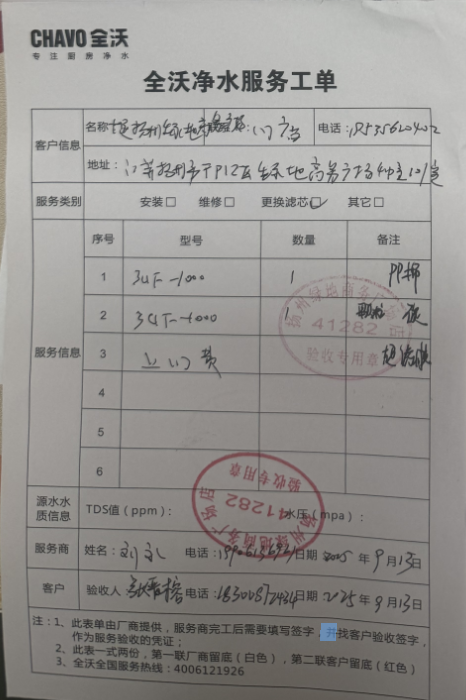 CHAVO全沃
专注厨房净水
全沃净水服务工单
客户信息
名称 门店 电话:
地址:江苏扬州市
服务类别 安装□ 维修□ 更换滤芯☑ 其它□
服务信息
序号 型号 数量 备注
1 3UF-1000 1 PP棉
2 3UF-1000 1 颗粒 炭
3 上门费 超滤膜
4
5
6
41282
验收专用章
41282
验收专用章
源水水质信息 TDS值(ppm): 水压(mpa):
服务商 姓名:刘 电话: 日期 2025年9月13日
客户 验收人 电话:18300872434 日期 2025年9月13日
注:1、此表单由厂商提供,服务商完工后需要填写签字,并找客户验收签字,
作为服务验收的凭证;
2、此表一式两份,第一联厂商留底(白色),第二联客户留底(红色)
3、全沃全国服务热线:4006121926